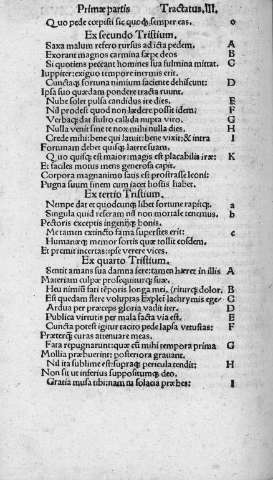 Primæ partis Tractatus. III.
Quo pede cœpisti sic quoqʒ semper eas. o
Ex secundo Tristium.
Saxa malum refero rursus ad icta pedem. A
Exorant magnos carmina sæpe deos B
Si quotiens peccant homines sua fulmina mittat. C
Iuppiter: exiguo tempore inermis erit.
Cunctaqʒ fortuna nimium faciente dehiscunt: D
Ipsa suo quædam pondere tracta ruunt.
Nube solet pulsa candidus ire dies. E
Nil prodest quod non lædere possit idem: F
Verbaqʒ dat stulto callida nupta viro. G
Nulla venit sine te nox mihi nulla dies. H
Crede mihi: bene qui latuit: bene vixit: & intra I
Fortunam debet quisqʒ latere suam.
Quo quisqʒ est maior: magis est placabilis iræ: K
Et faciles motus mens generosa capit.
Corpora magnanimo satis est prostrasse leoni:
Pugna suum finem cum iacet hostis habet.
Ex tertio Tristium.
Nempe dat et quodcunqʒ libet fortune rapitqʒ. a
Singula quid referam nil non mortale tenemus. b
Pectoris exceptis ingeniiqʒ bonis.
Me tamen extincto fama superstes erit: c
Humanæqʒ memor sortis quæ tollit eosdem.
Et premit incertas: ipse verere vices.
Ex quarto Tristium.
Sentit amans sua damna fere: tamen hæret in illis A
Materiam culpæ prosequiturqʒ suæ.
Heu nimium fati tempora longa mei. (riturqʒ dolor. B
Est quedam flere voluptas Expletur lachrymis ege/ C
Ardua per præceps gloria vadit iter. D
Publica virtutis per mala facta via est. E
Cuncta potest igitur tacito pede lapsa vetustas: F
Præterqʒ curas attenuare meas.
Fata repugnarunt: quæ cum mihi tempora prima G
Mollia præbuerint: posteriora gravant.
Nil ita sublime est: supraqʒ pericula tendit: H
Non sit ut inferius suppositumqʒ deo.
Gratia musa tibi: nam tu solacia præbes: I